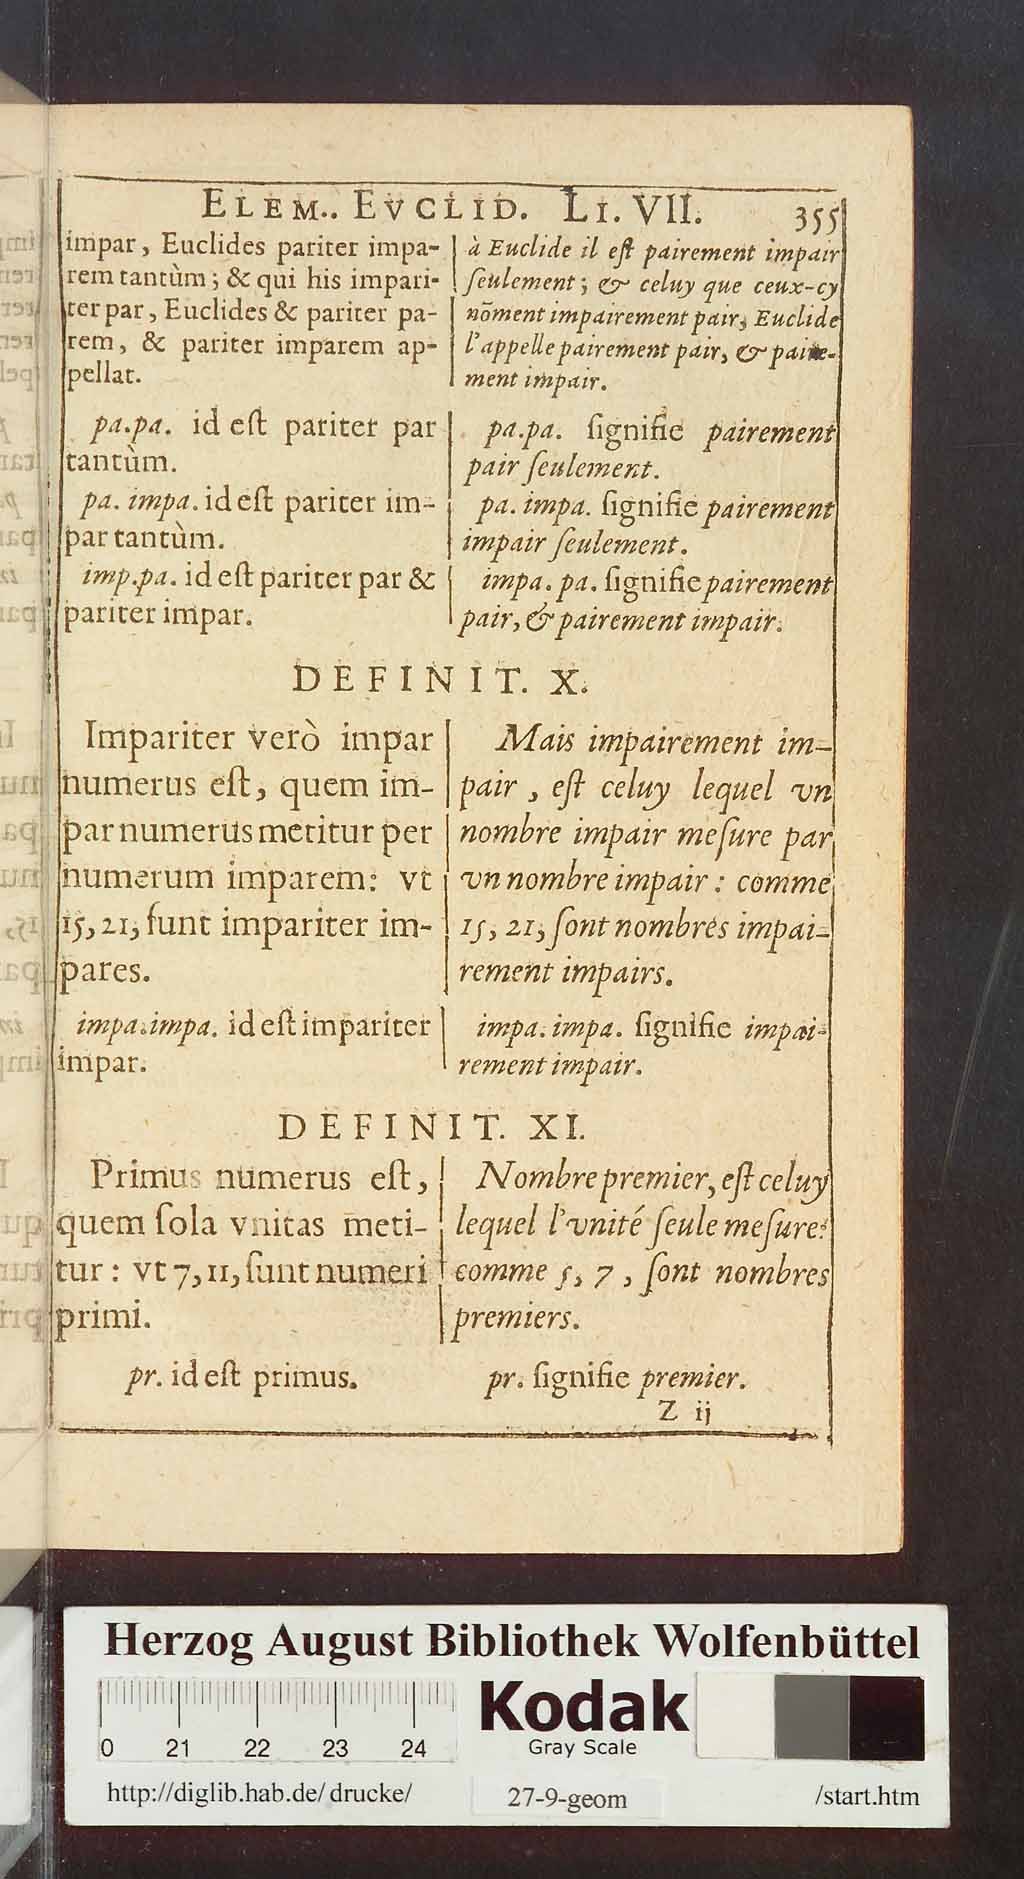 ELEM.. EVCLID. LI. VII. 355
impar, Euclides pariter impa-
rem tantùm; & qui his impari-
ter par, Euclides & pariter pa-
rem, & pariter imparem ap-
pellat.
à Euclide il eſt pairement impair
ſeulement; & celuy que ceux-cy
nõment impairement pair, Euclide
l'appelle pairement pair, & paire-
ment impair.
pa.pa. id eſt pariter par
tantùm.
pa. impa. id eſt pariter im-
par tantùm.
imp.pa. id eſt pariter par &
pariter impar.
pa.pa. ſignifie pairement
pair ſeulement.
pa. impa. ſignifie pairement
impair ſeulement.
impa. pa. ſignifie pairement
pair, & pairement impair.
DEFINIT. X.
Impariter verò impar
numerus eſt, quem im-
par numerus metitur per
numerum imparem: vt
15, 21, ſunt impariter im-
pares.
Mais impairement im-
pair, eſt celuy lequel vn
nombre impair meſure par
vn nombre impair: comme
15, 21, ſont nombres impai-
rement impairs.
impa.impa. id eſt impariter
impar.
impa. impa. ſignifie impai-
rement impair.
DEFINIT. XI.
Primus numerus eſt,
quem ſola vnitas meti-
tur: vt 7, 11, ſunt numeri
primi.
Nombre premier, eſt celuy
lequel l'vnité ſeule meſure:
comme 5, 7, ſont nombres
premiers.
pr. id eſt primus.
pr. ſignifie premier.
Z ij
Herzog August Bibliothek Wolfenbüttel
0 21 22 23 24
Kodak
Gray Scale
http://diglib.hab.de/drucke/ 27-9-geom /start.htm